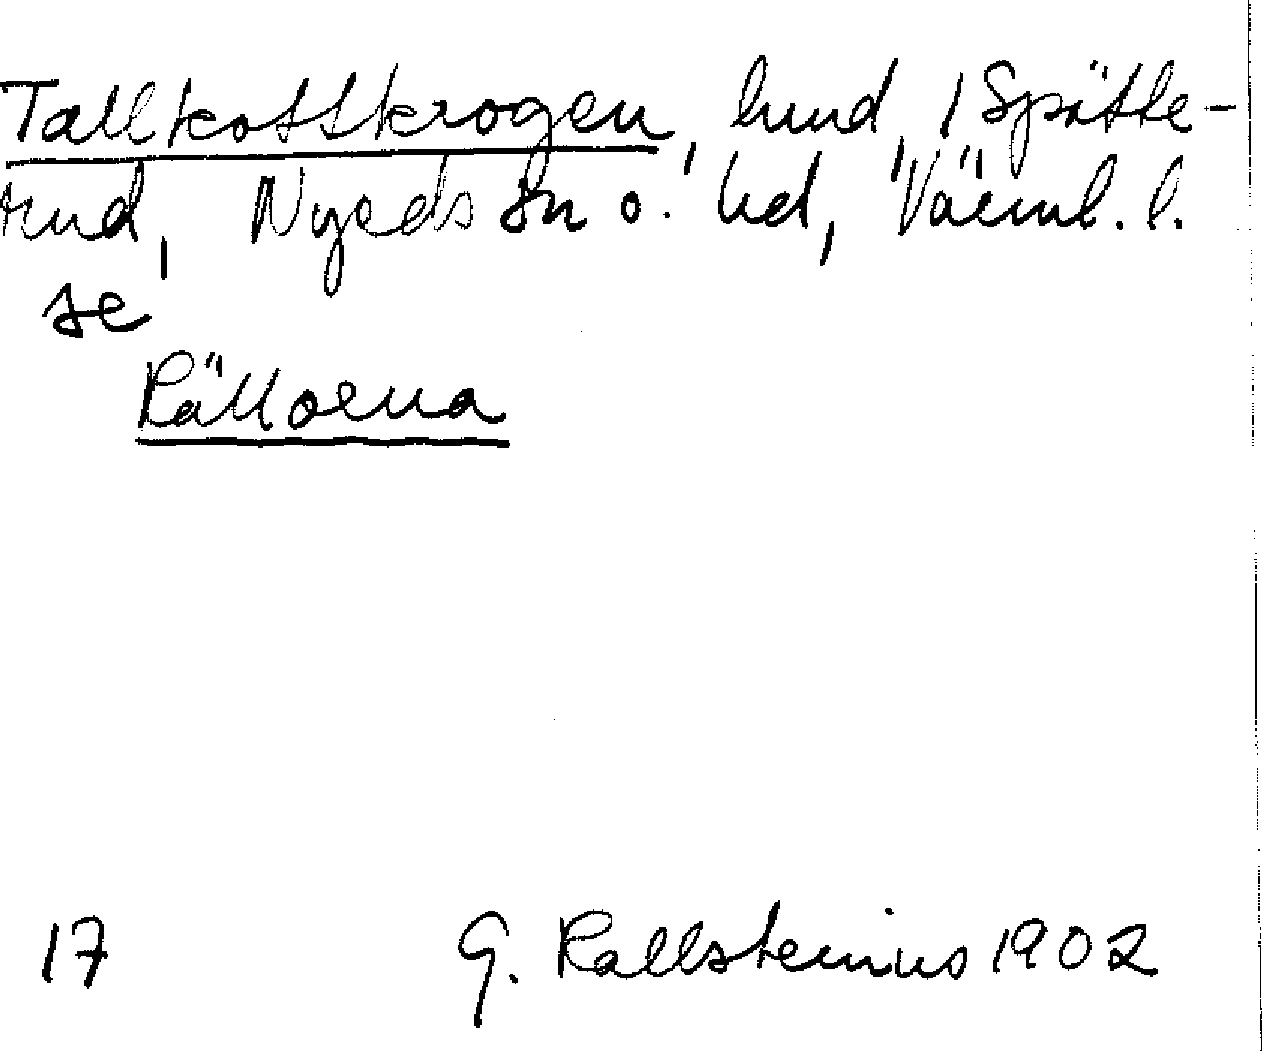 Tallkottkrogen, lund, i Spätte-
rud, Nyeds sn o. hd, Värml. l.
se
Rällorna
17 G. Kallstenius 1902